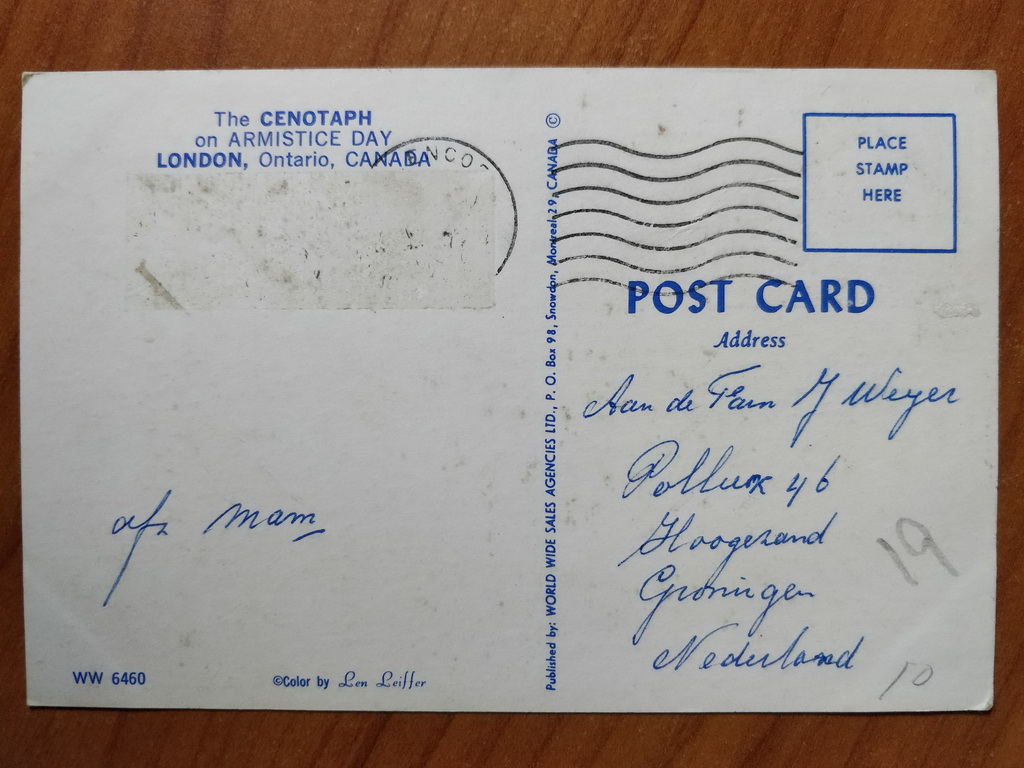 The CENOTAPH
on ARMISTICE DAY
LONDON, Ontario, CANADA
afz mam
WW 6460
©Color by Len Leiffer
Published by: WORLD WIDE SALES AGENCIES LTD., P. O. Box 98, Snowdon, Montreal 29, CANADA ©
PLACE
STAMP
HERE
POST CARD
Address
Aan de Fam J Weyer
Pollux 46
Hoogezand
Groningen
Nederland
19
10